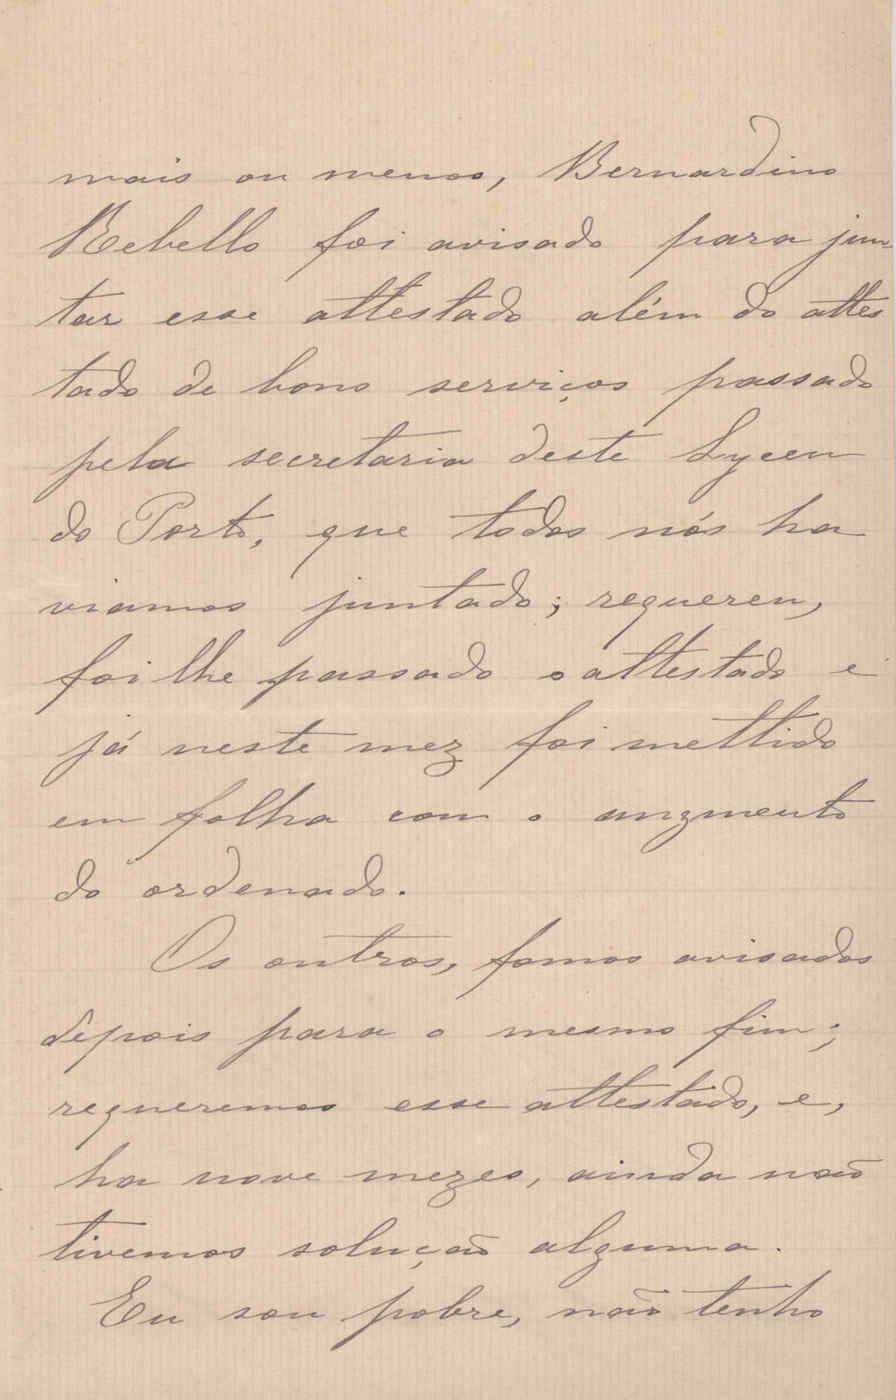 mais ou menos, Bernardino
Rebello foi avisado para jun-
tar esse attestado além do attes
tado de bons serviços passado
pela secretaria deste Lyceu
do Porto, que todos nós ha
viamos juntado; requereu,
foi lhe passado o attestado e
já neste mez foi mettido
em folha com o augmento
do ordenado.
Os outros, fomos avisados
depois para o mesmo fim;
requeremos esse attestado, e,
ha nove mezes, ainda não
tivemos solução alguma.
Eu sou pobre, não tenho